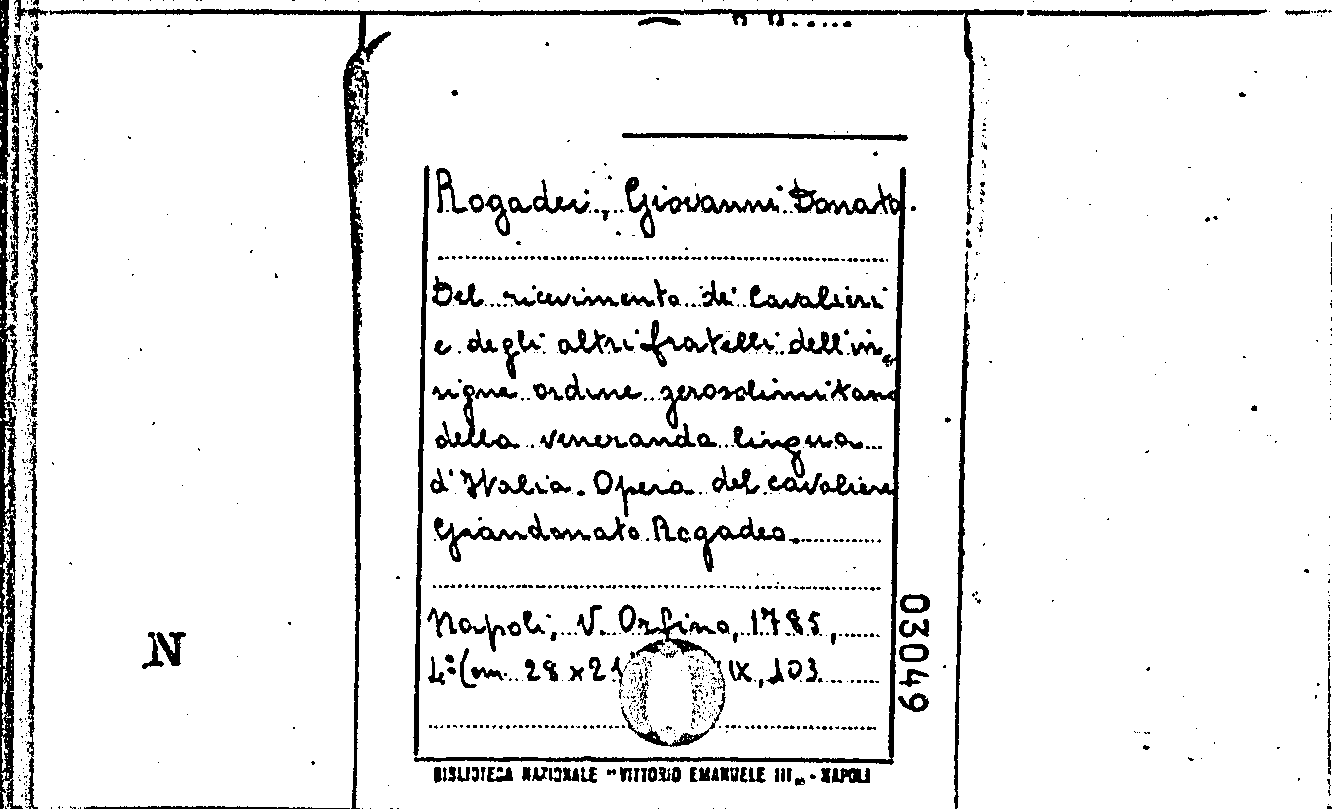 Rogadei, Giovanni Donato.
Del ricevimento de' Cavalieri
e degli altri fratelli dell'in,
signe ordine gerosolimitano
della veneranda lingua
d'Italia. Opera del cavaliere
Giandonato Rogadeo.
Napoli, V. Orsino, 1785,
4.º (cm. 28 x 21 IX, 103
BIBLIOTECA NAZIONALE "VITTORIO EMANUELE III„ - NAPOLI
03049
N